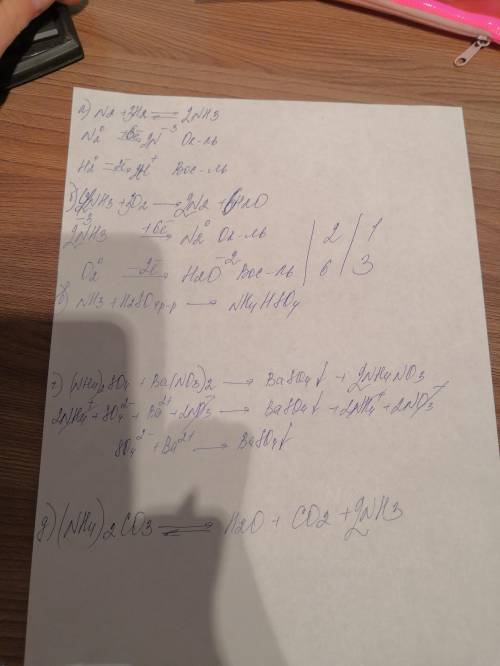 а) N2 + 3H2 ⇌ 2NH3
N2⁰ +6e → 2N⁻³ Ок-ль
H2⁰ -2e → 2H⁺ Вос-ль
б) 4NH3 + 3O2 → 2N2 + 6H2O
2N⁻³H3 +6e → N2⁰ Ок-ль | 2 | 1
O2⁰ -2e → H2O⁻² Вос-ль | 6 | 3
в) NH3 + H2SO4 р-р → NH4HSO4
г) (NH4)2SO4 + Ba(NO3)2 → BaSO4↓ + 2NH4NO3
2NH4⁺ + SO4²⁻ + Ba²⁺ + 2NO3⁻ → BaSO4↓ + 2NH4⁺ + 2NO3⁻
SO4²⁻ + Ba²⁺ → BaSO4↓
д) (NH4)2CO3 ⇌ H2O + CO2 + 2NH3